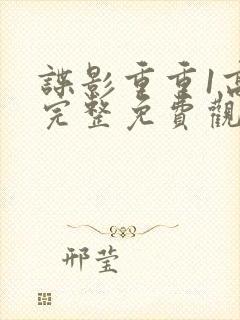 諜影重重1高
完整免費觀
邢莹